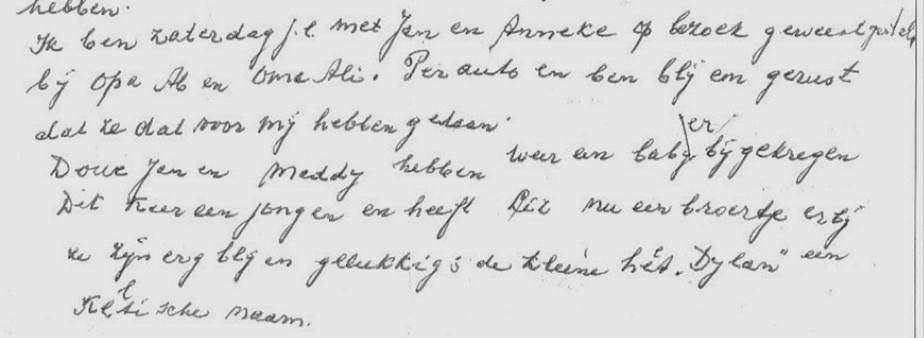 hebben.
Ik ben zaterdag j.l. met Jan en Anneke op bezoek geweest
bij Opa Ab en Ome Ali. Per auto en ben blij em gerust
dat ze dat voor mij hebben gedaan.
Douwe Jan en Meddy hebben weer een baby er bijgekregen
Dit keer een jongen en heeft nu een broertje erbij
ze zijn erg blij en gelukkig; de kleine hét „Dylan" een
Keltische naam.